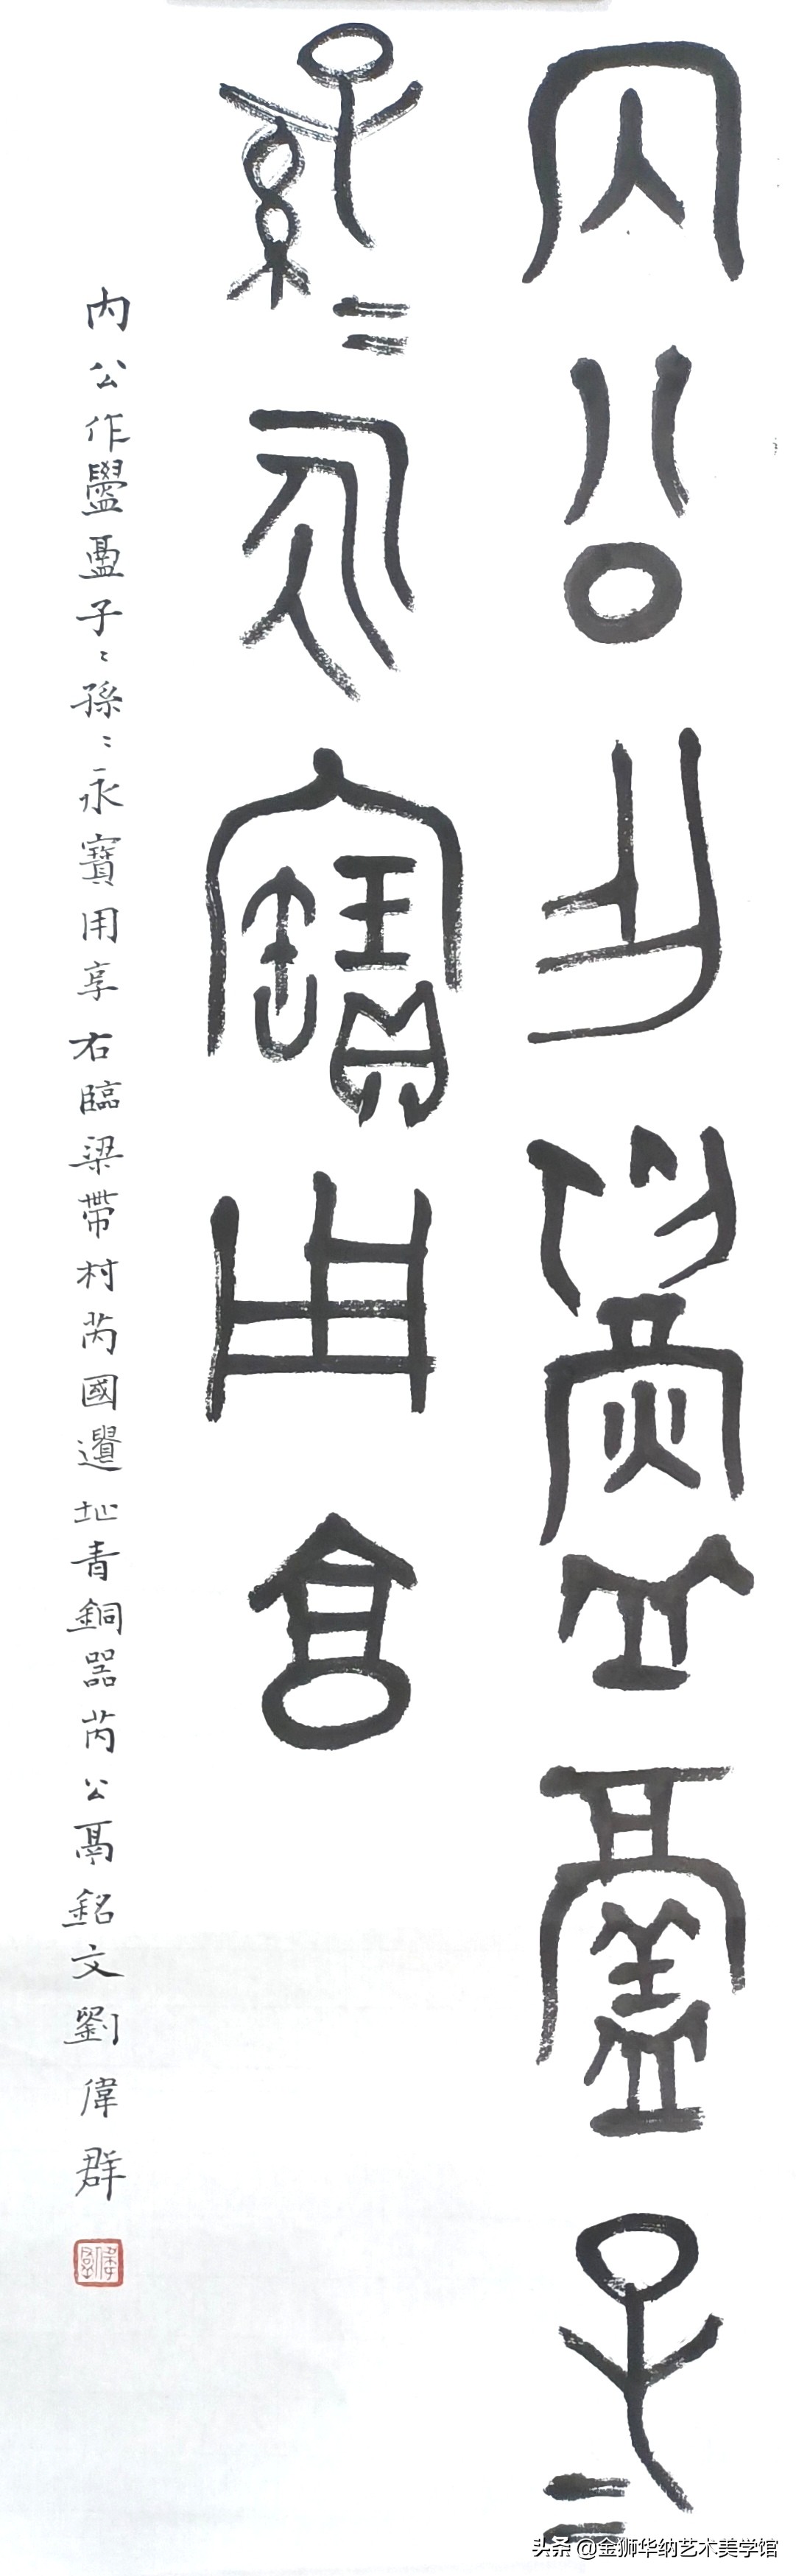 内公乍鑄鬲子〻
孫〻永寶用享
内公作鑄鬲子〻孫〻永寶用享右臨梁帶村芮國遺址青銅器芮公鬲銘文劉偉群
头条 @金狮华纳艺术美学馆